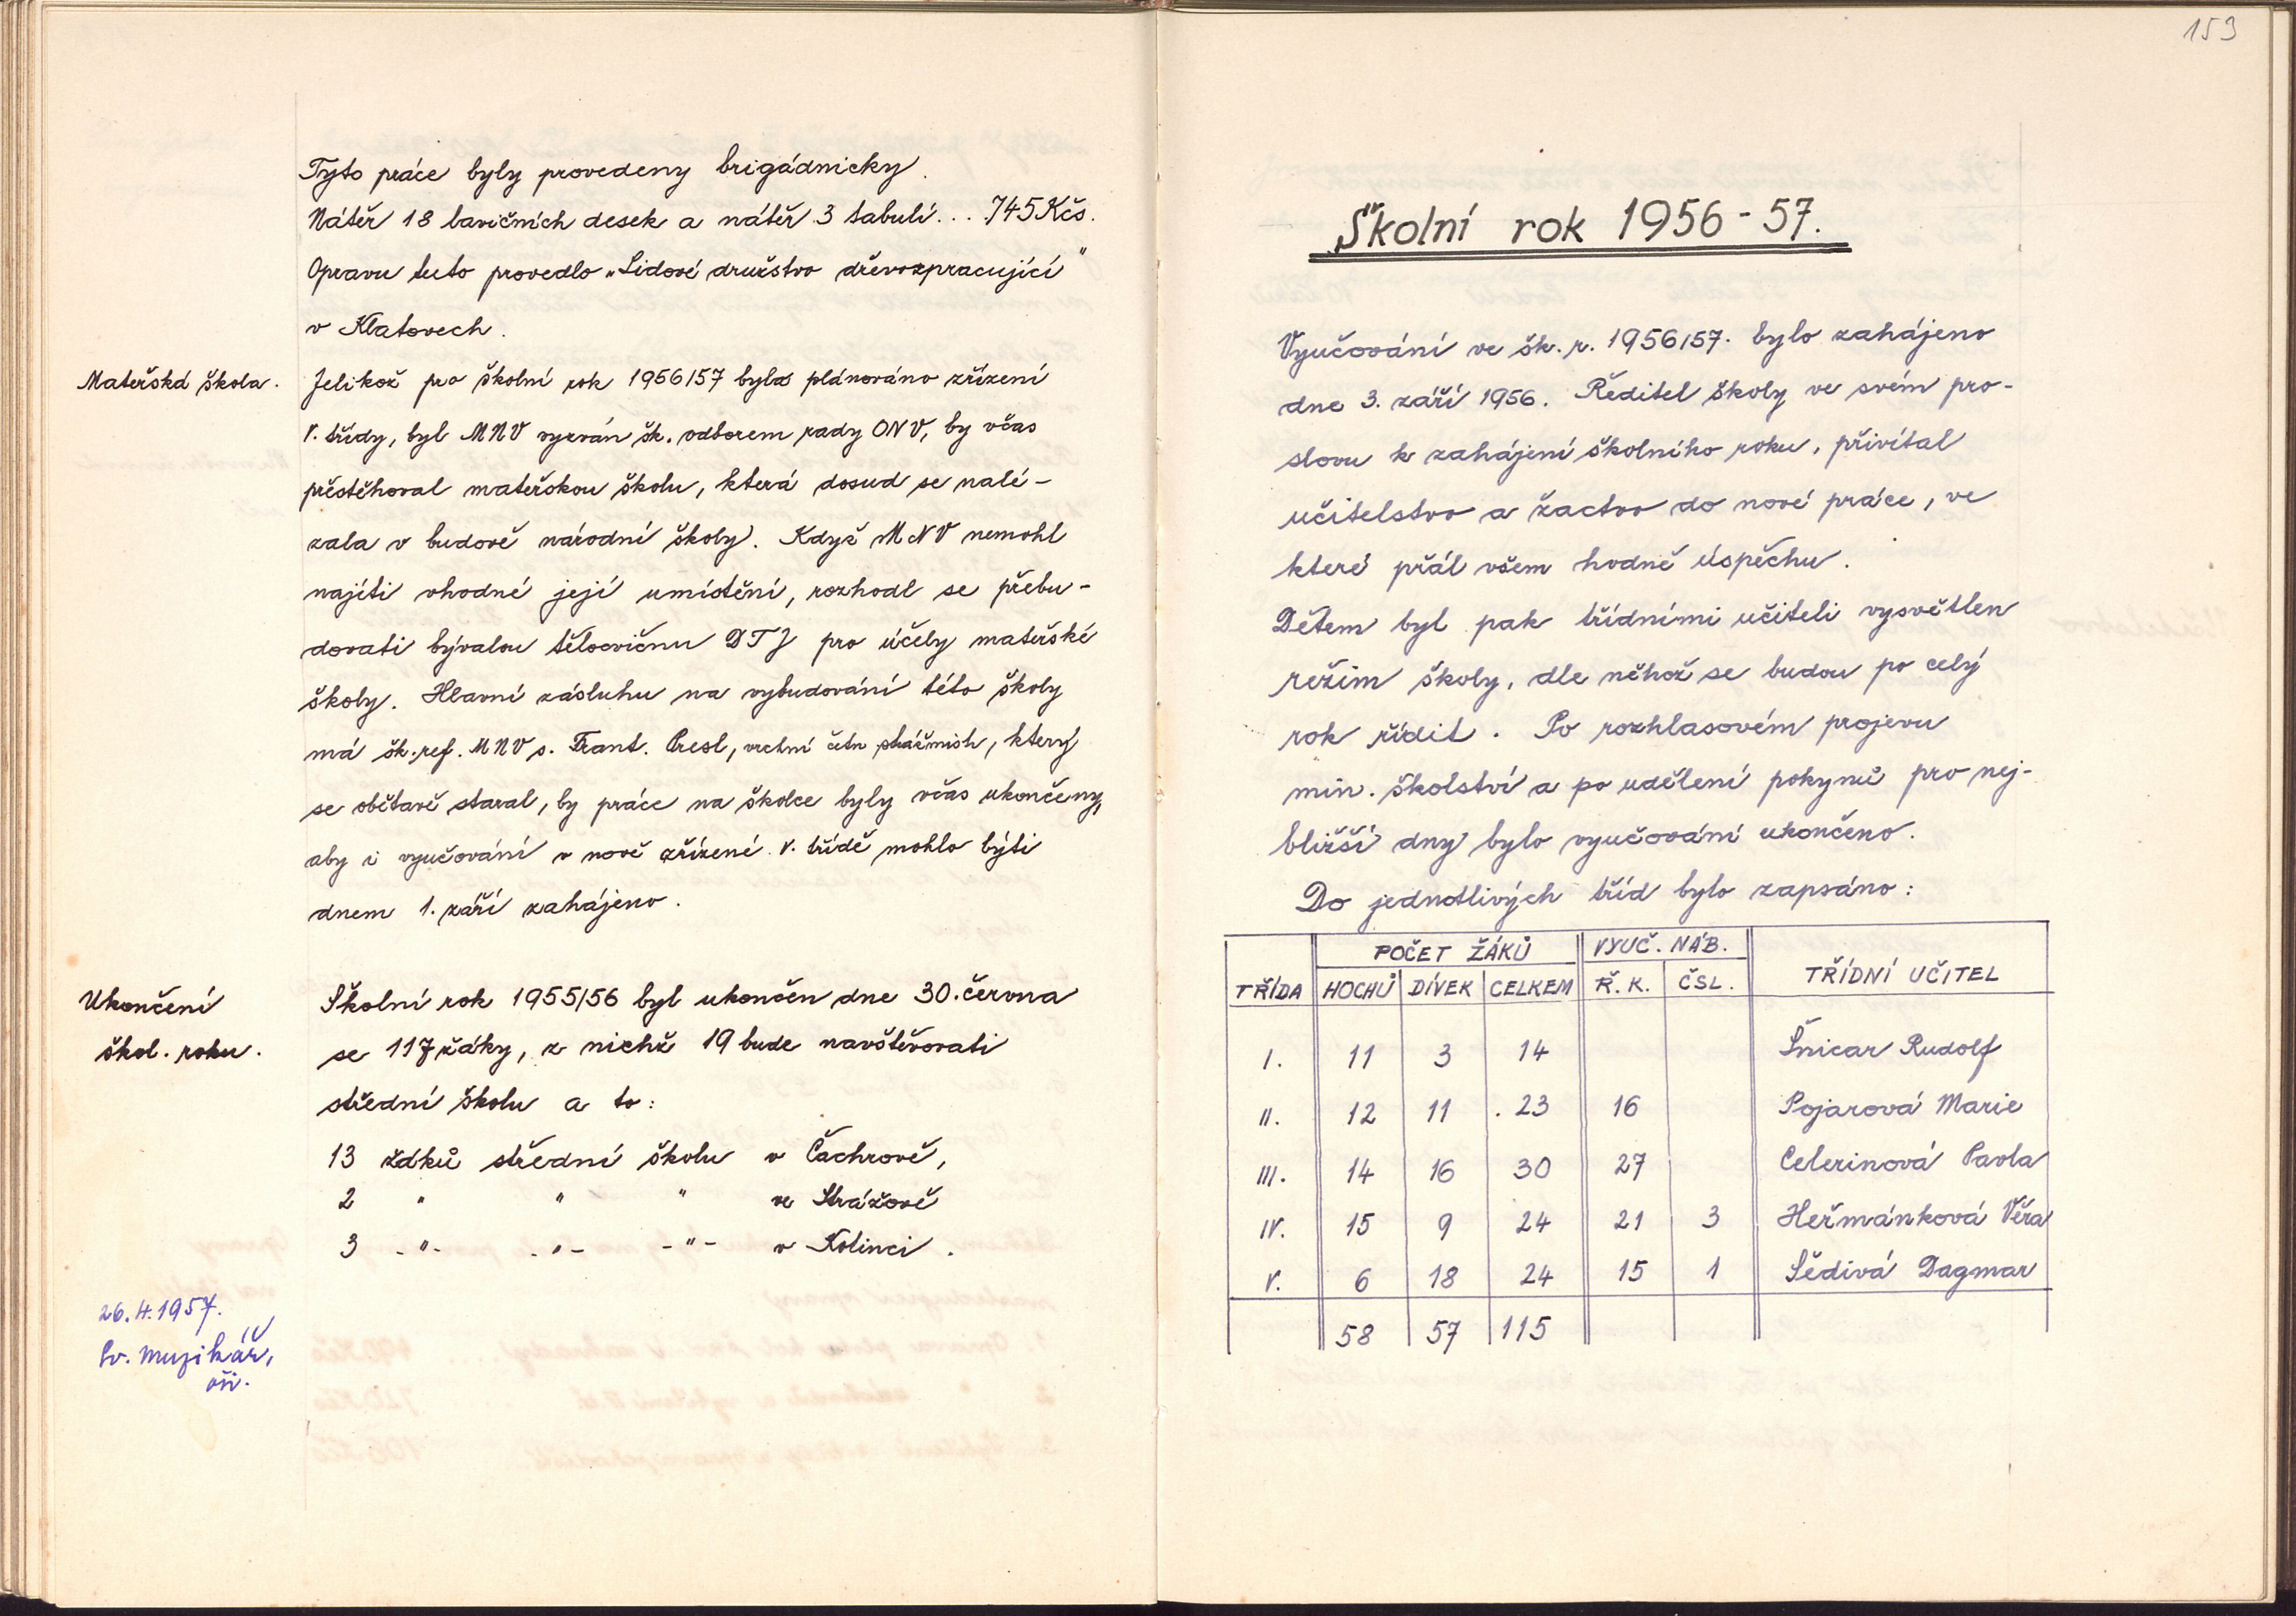 Tyto práce byly provedeny brigádnicky.
Nátěr 18 lavičních desek a nátěr 3 tabulí... 745 Kčs.
Opravu tuto provedlo „Lidové družstvo dřevozpracující"
v Klatovech.
Mateřská škola.
Jelikož pro školní rok 1956/57 bylo plánováno zřízení
V. třídy, byl MNV vyzván šk. odborem rady ONV, by včas
přestěhoval mateřskou školu, která dosud se nalé-
zala v budově národní školy. Když MNV nemohl
najíti vhodné její umístění, rozhodl se přebu-
dovati bývalou tělocvičnu DTJ pro účely mateřské
školy. Hlavní zásluhu na vybudování této školy
má šk. ref. MNV s. Frant. Presl, vrchní četn. strážmistr, který
se obětavě staral, by práce na školce byly včas ukončeny,
aby i vyučování v nově zřízené V. třídě mohlo býti
dnem 1. září zahájeno.
Ukončení
škol. roku.
Školní rok 1955/56 byl ukončen dne 30. června
se 117 žáky, z nichž 19 bude navštěvovati
střední školu a to:
13 žáků střední školu v Čachrově,
2 " " " ve Strážově
3 -"- -"- -"- v Kolinci.
26.4.1957.
Sv. Muzikář,
oši.
153
Školní rok 1956-57.
Vyučování ve šk. r. 1956/57. bylo zahájeno
dne 3. září 1956. Ředitel školy ve svém pro-
slovu k zahájení školního roku, přivítal
učitelstvo a žactvo do nové práce, ve
které přál všem hodně úspěchu.
Dětem byl pak třídními učiteli vysvětlen
režim školy, dle něhož se budou po celý
rok řídit. Po rozhlasovém projevu
min. školství a po udělení pokynů pro nej-
bližší dny bylo vyučování ukončeno.
Do jednotlivých tříd bylo zapsáno:
POČET ŽÁKŮ VYUČ. NÁB.
TŘÍDA HOCHŮ DÍVEK CELKEM Ř. K. ČSL. TŘÍDNÍ UČITEL
I. 11 3 14 Šnicar Rudolf
II. 12 11 . 23 16 Pojarová Marie
III. 14 16 30 27 Celerinová Pavla
IV. 15 9 24 21 3 Heřmánková Věra
V. 6 18 24 15 1 Šědivá Dagmar
58 57 115